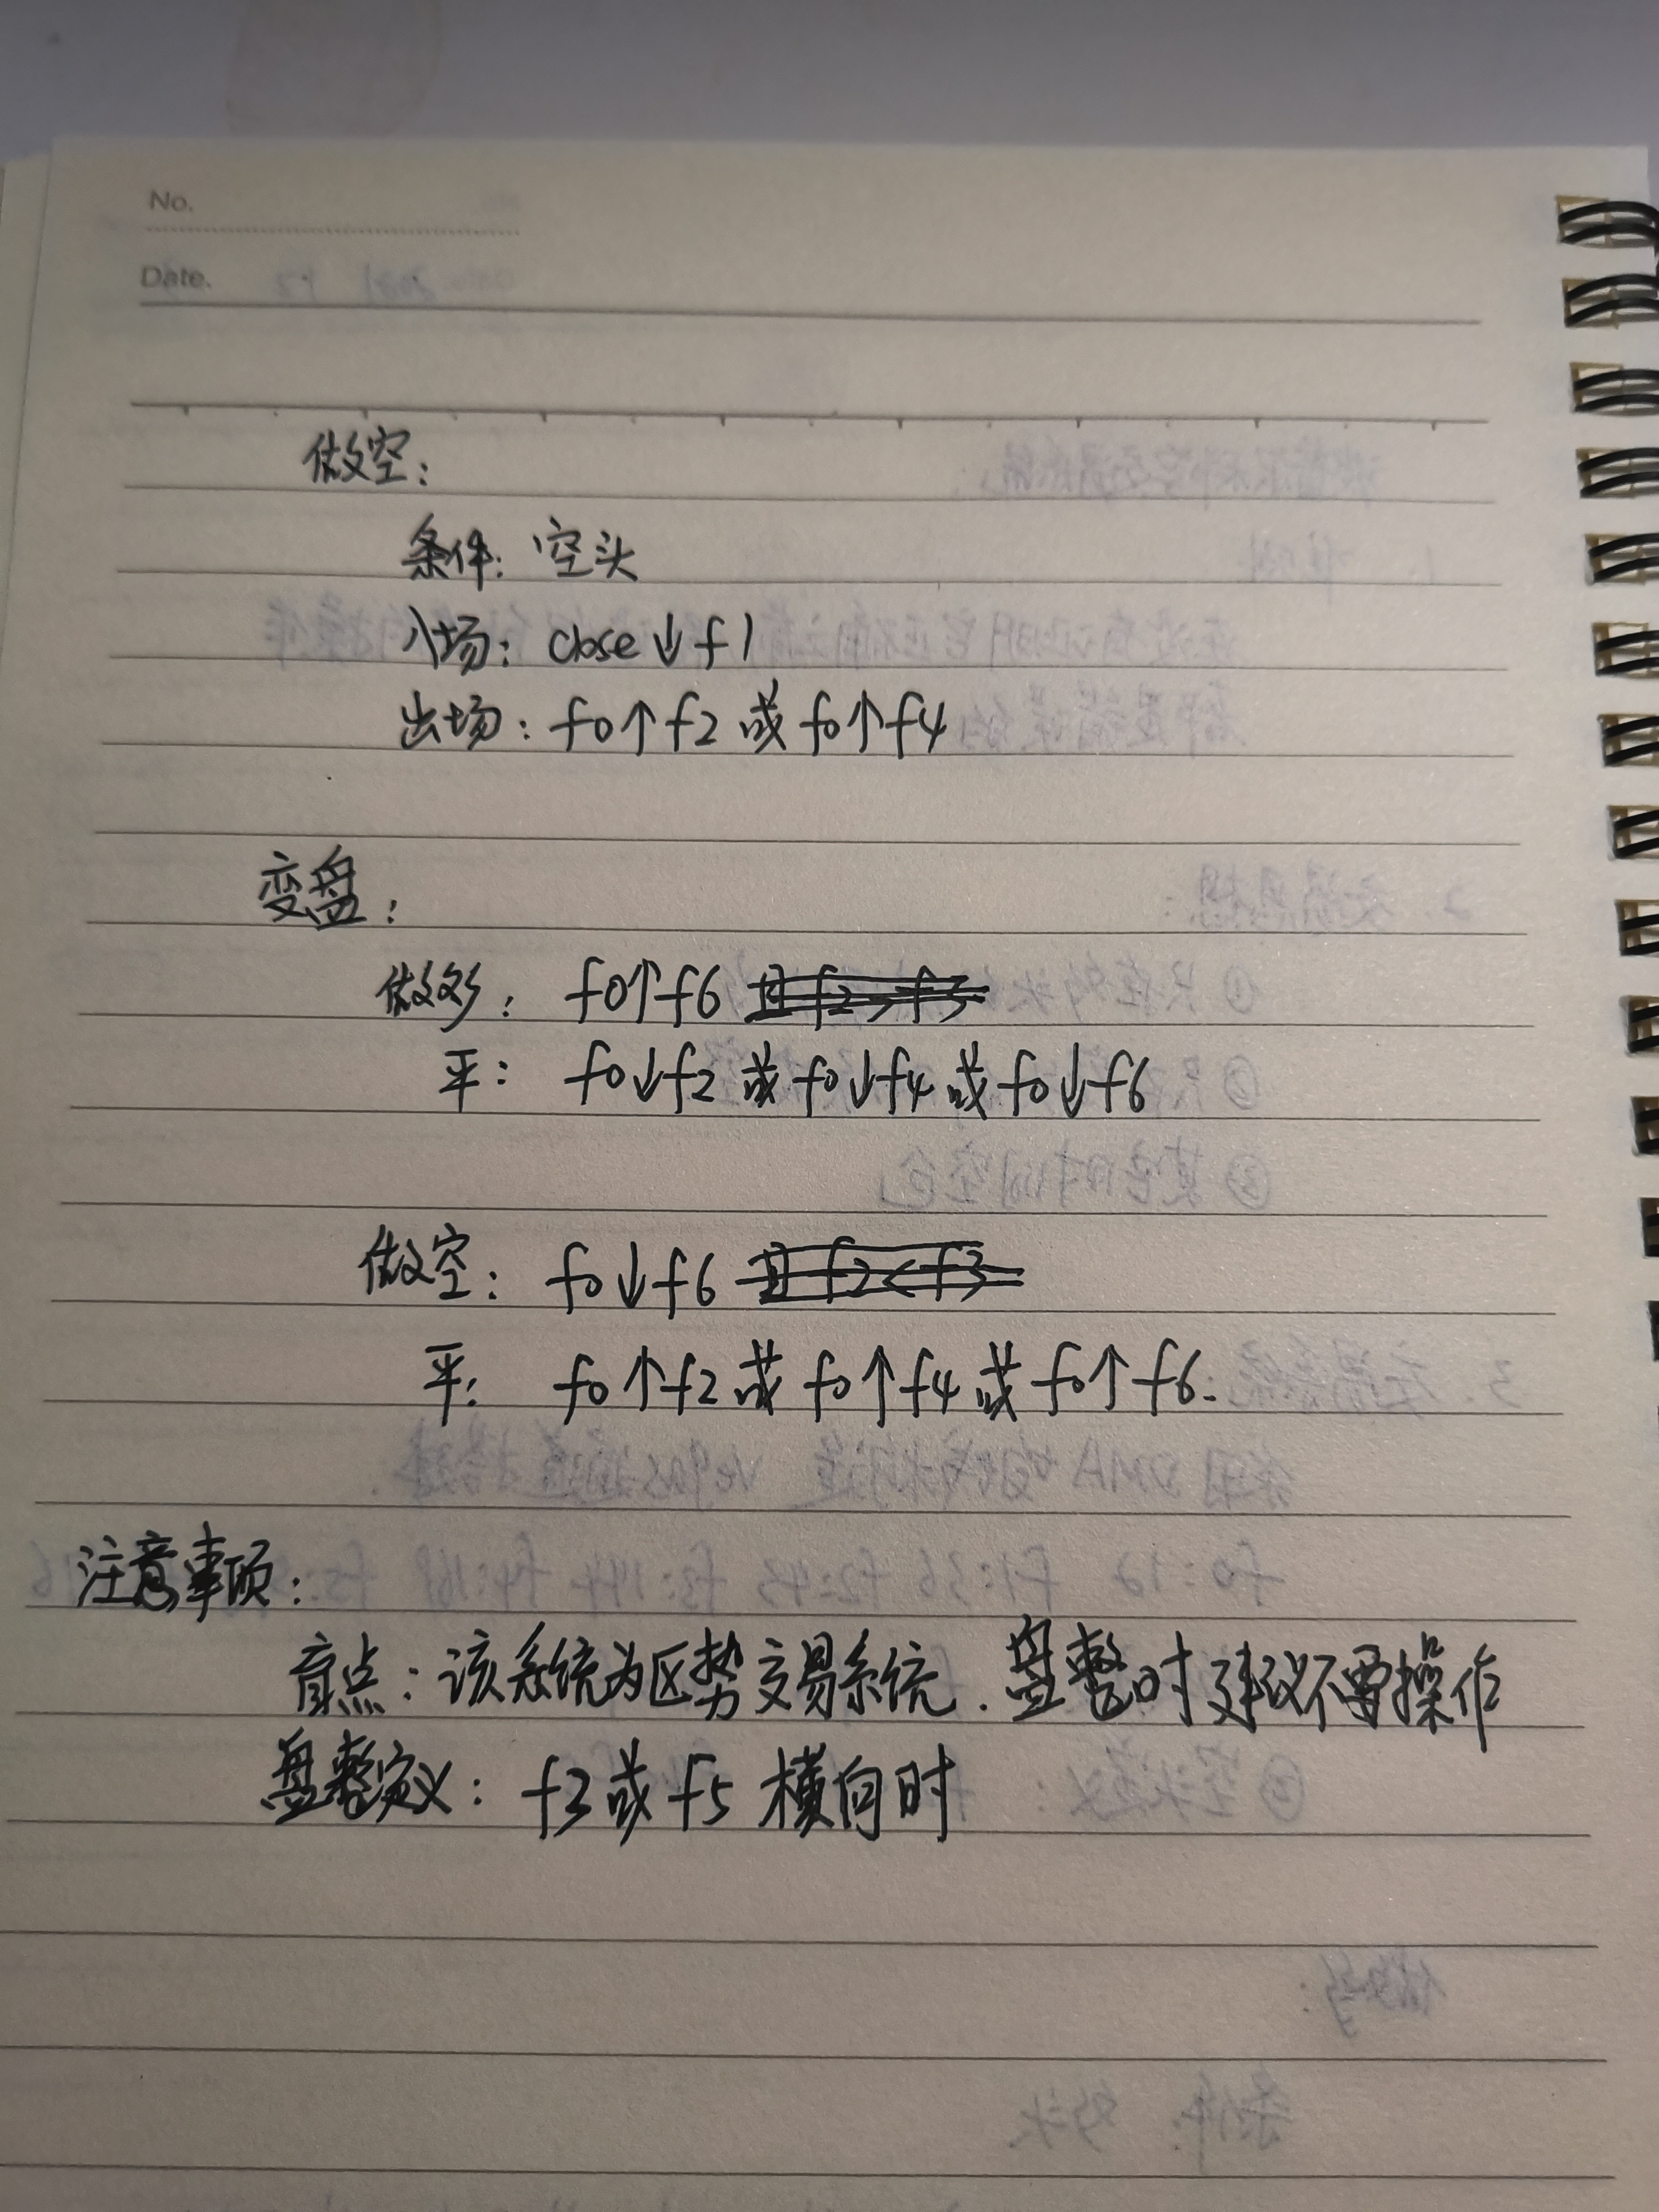 No.
Date.
做空：
条件：空头
入场：close↓f1
出场：f0↑f2 或 f0↑f4
变盘：
做多：f0↑f6 且 f2>f3
平：f0↓f2 或 f0↓f4 或 f0↓f6
做空：f0↓f6 且 f2<f3
平：f0↑f2 或 f0↑f4 或 f0↑f6.
注意事项：
盲点：该系统为区势交易系统.盘整时建议不要操作
盘整定义：f3或f5横向时